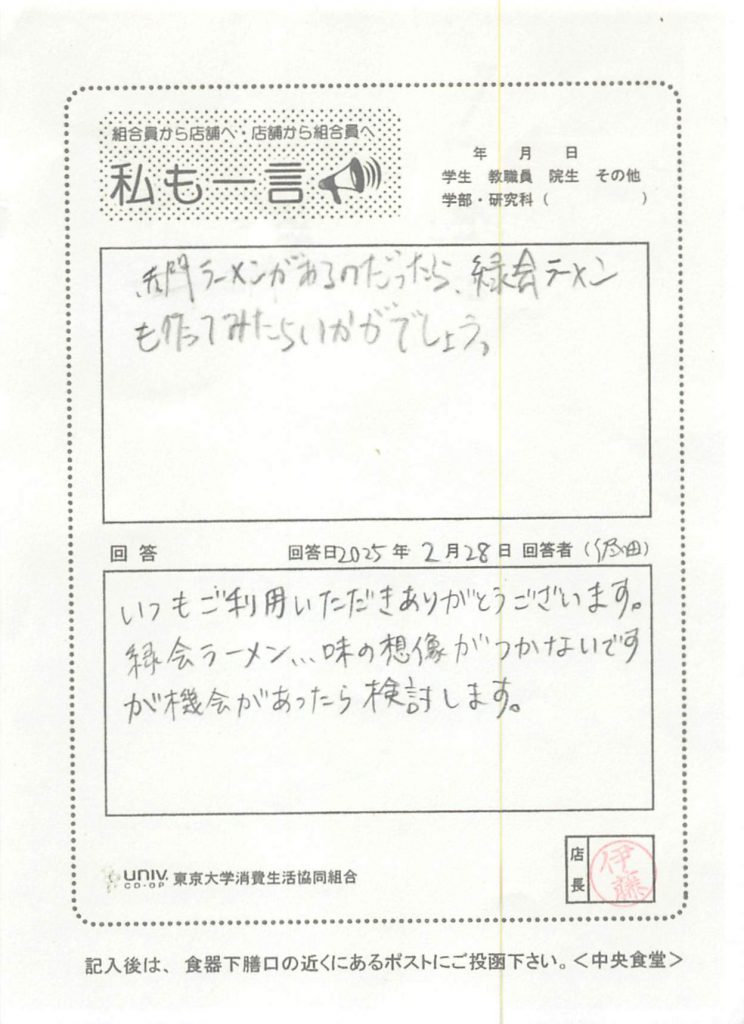 組合員から店舗へ・店舗から組合員へ
私も一言
年 月 日
学生 教職員 院生 その他
学部・研究科（ ）
赤門ラーメンがあるのだったら、緑会ラーメン
も作ってみたらいかがでしょう。
回答 回答日2025年2月28日 回答者（ 田）
いつもご利用いただきありがとうございます。
緑会ラーメン...味の想像がつかないです
が機会があったら検討します。
UNIV. CO-OP 東京大学消費生活協同組合
店長 伊藤
記入後は、食器下膳口の近くにあるポストにご投函下さい。＜中央食堂＞